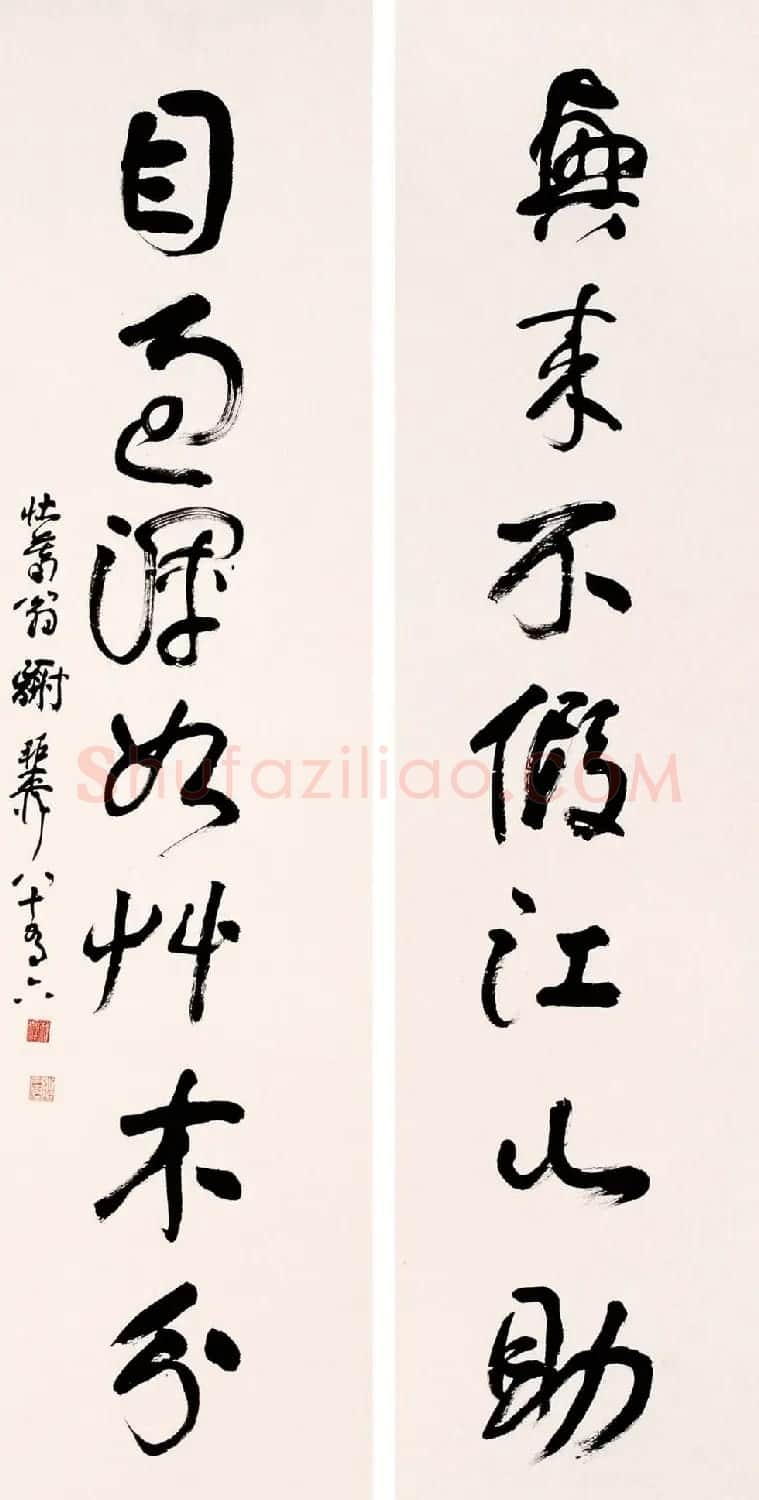 興来不假江山助
目過渾如艸木分
壯暮翁謝稚柳八十有六
Shufaziliao.COM